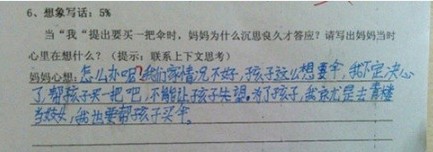 6、想象写话：5%
当“我”提出要买一把伞时，妈妈为什么沉思良久才答应？请写出妈妈当时
心里在想什么？（提示：联系上下文思考）
妈妈心想：怎么办呢？我们家情况不好，孩子这么想要伞，我下定决心
了，帮孩子买一把吧，不能让孩子失望。为了孩子，我就算是去青楼
当妓女，我也要帮孩子买伞。